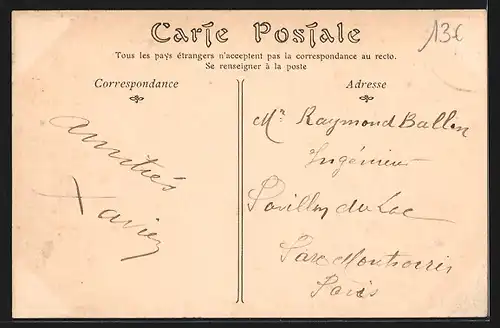 Carte Postale
13€
Tous les pays étrangers n'acceptent pas la correspondance au recto.
Se renseigner à la poste
Correspondance
Adresse
Amitiés
Xavier
Mr Raymond
Ingénieur
Pavillon du Lac
Parc Montsouris
Paris